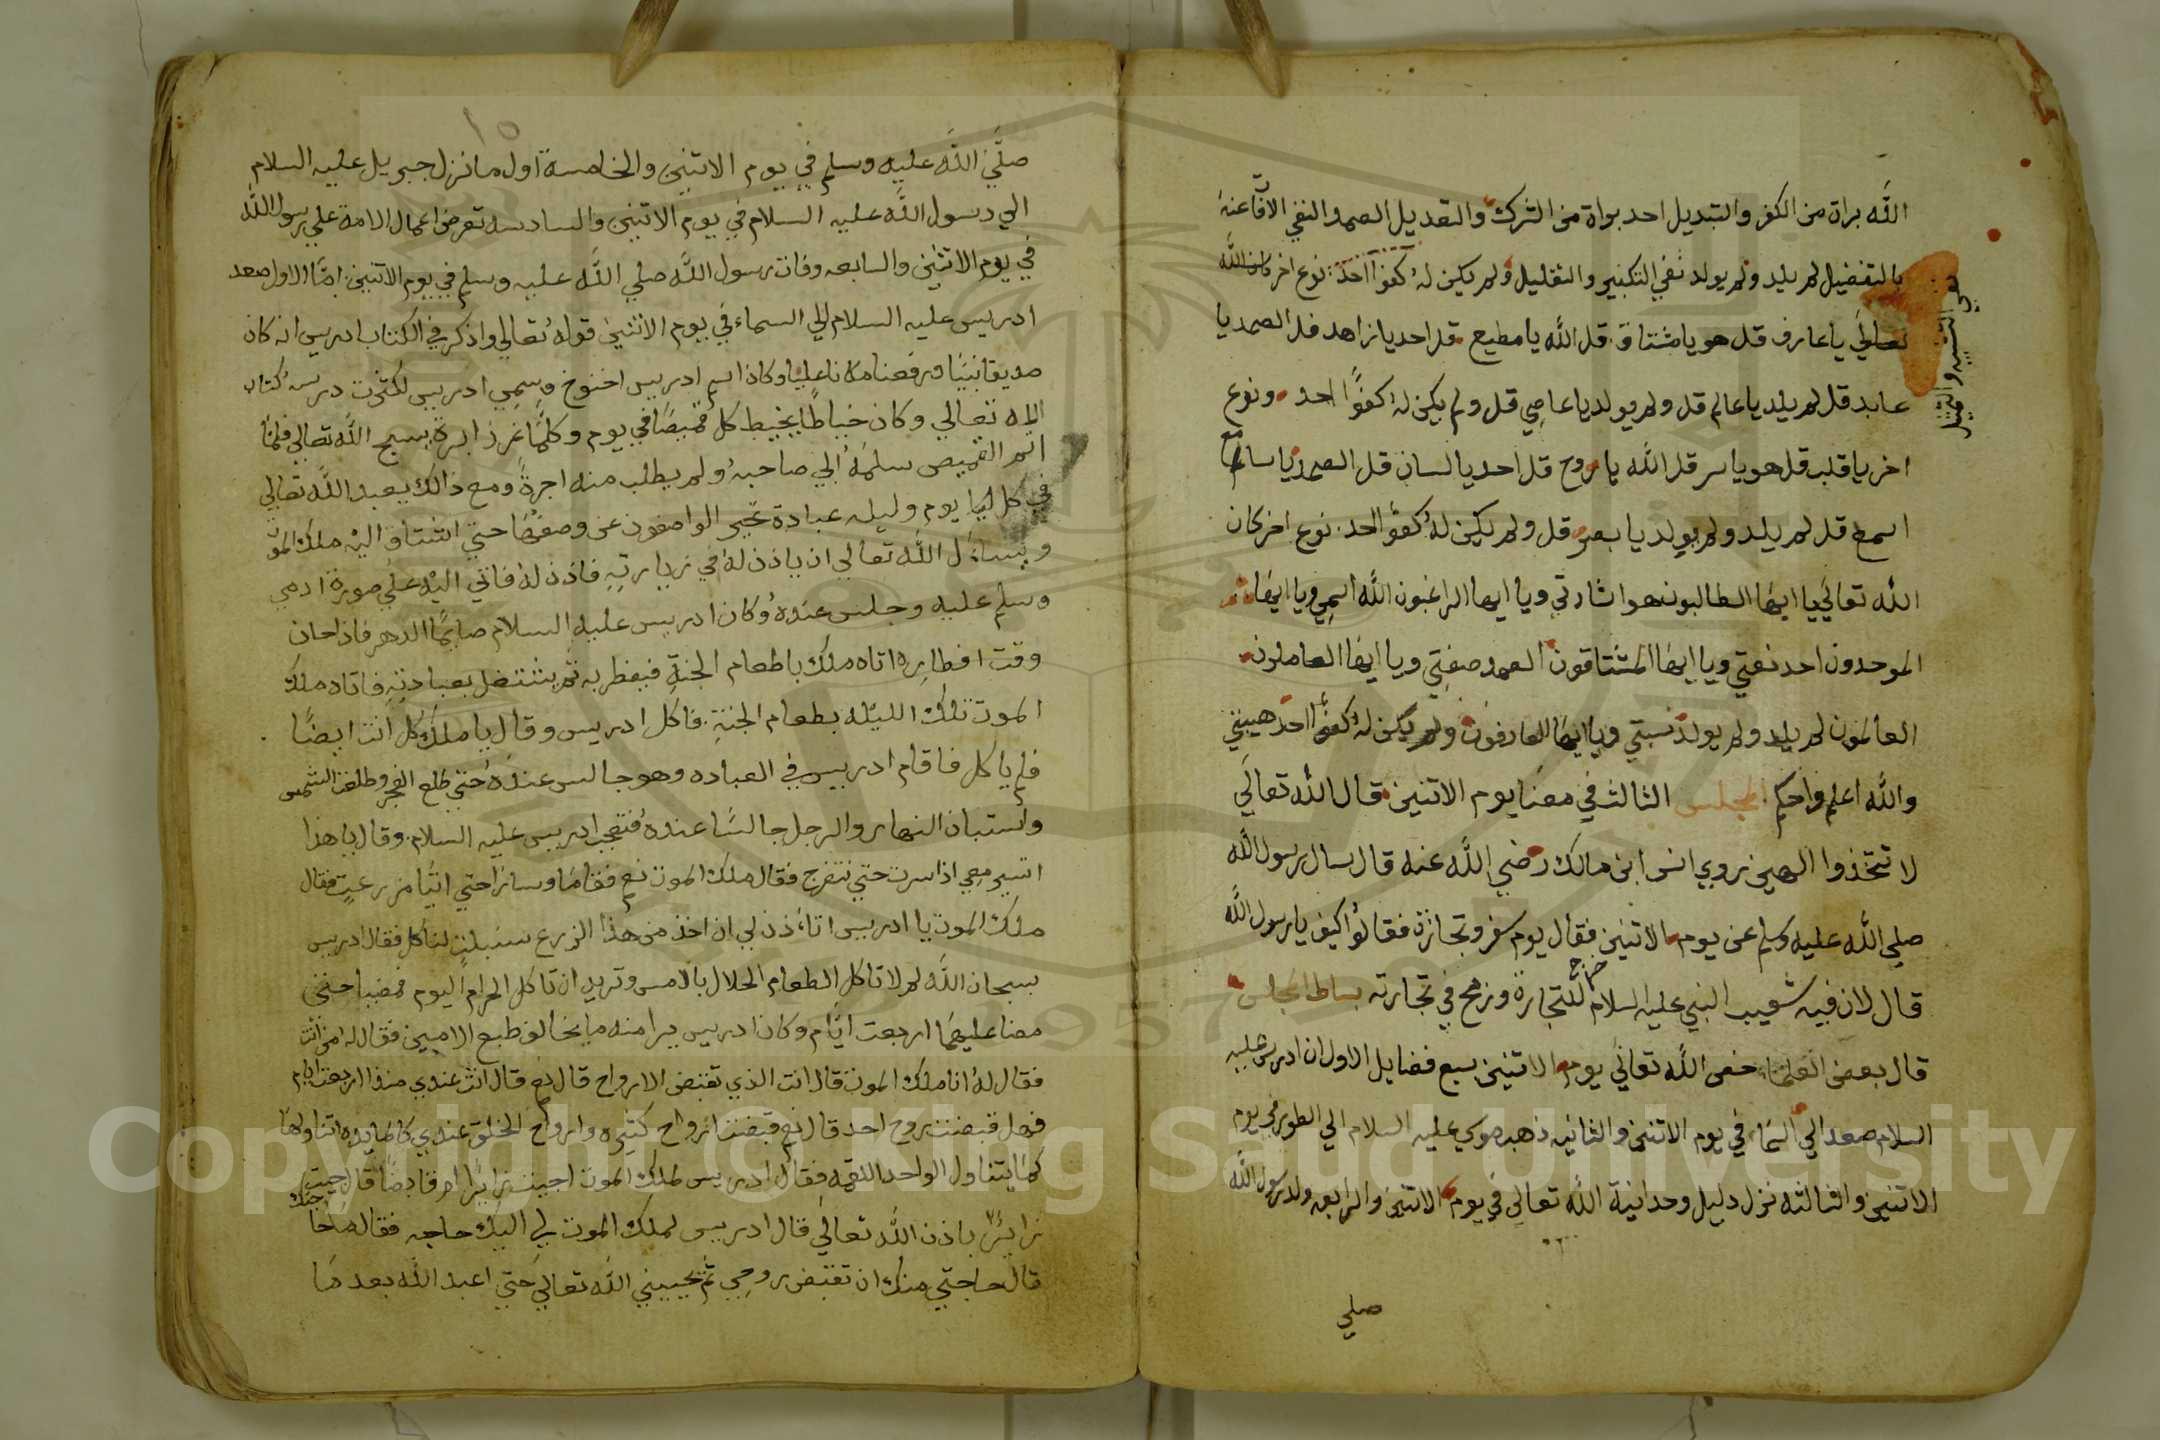 الله براة من الكفر والتبديل احد براة من الشرك والتعديل الصمد النفي الافآ عنه
بالتفضيل لم يلد ولم يولد نفي التكبير والتقليل ولم يكن له كفوا احد نوع اخر كان الله
تعالي يا عارف قل هو يا مشتاق قل الله يا مطيع قل احد يا زاهد قل الصمد يا
عابد قل لم يلد يا عالم قل ولم يولد يا عاصي قل ولم يكن له كفوًا احد ونوع
اخر يا قلب قل هو يا سر قل الله يا روح قل احد يا لسان قل الصمد يا سامع
اسمع قل لم يلد ولم يولد يا بصر قل ولم يكن له كفؤ احد نوع اخر كان
الله تعالي يا ايها الطالبون هو اشارتي ويا ايها الراغبون الله اسمي ويا ايها
الموحدون احد نعتي ويا ايها المشتاقون الصمد صفتي ويا ايها العاملون
العالمون لم يلد ولم يولد نسبتي ويا ايها العارفون ولم يكن له كفوا احد هيبتي
والله اعلم واحكم المجلس الثالث في معنا يوم الاتنين قال الله تعالي
لا تتخذوا الهين روي انس ابن مالك رضي الله عنه قال سال رسول الله
صلي الله عليه وسلم عن يوم الاتنين فقال يوم سفر وتجارة فقالوا كيف يا رسول الله
قال لان فيه شعيب النبي عليه السلام خرج للتجارة وربح في تجارته بساط المجلس
قال بعض العلماء خص الله تعالي يوم الاتنين بسبع فضايل الاول ان ادريس عليه
السلام صعد الي السماء في يوم الاتنين والثانيه ذهب موسي عليه السلام الي الطور في يوم
الاتنين والثالثه نزل دليل وحدانية الله تعالي في يوم الاتنين والرابعه ولد رسول الله
صلي
نفي التشبيه والتمثيل
صلي الله عليه وسلم في يوم الاتنين والخامسة اول ما نزل جبريل عليه السلام
الي رسول الله عليه السلام في يوم الاتنين والسادسه تعرض اعمال الامة علي رسول الله
في يوم الاتنين والسابعه وفات رسول الله صلي الله عليه وسلم في يوم الاتنين امّا الاول صعد
ادريس عليه السلام الي السماء في يوم الاتنين قوله تعالي واذكر في الكتاب ادريس انه كان
صديقا نبيا ورفعناه مكانا عليا وكان اسم ادريس اخنوخ وسمي ادريس لكثرت درسه كتاب
الله تعالي وكان خياطًا يخيط كل يوم قميصًا في يوم وكلما غرز ابرة يسبح الله تعالي فلما
اتم القميص سلمه الي صاحبه ولم يطلب منه اجرة ومع ذالك يعبد الله تعالي
في كل يوم وليله عبادة تحير الواصفون عن وصفها حتي اشتاق اليه ملك الموت
ويساءل الله تعالي ان ياذن له في زيارته فاذن له فاتي اليه علي صورة ادمي
وسلم عليه وجلس عنده وكان ادريس عليه السلام صايما الدهر فاذا حان
وقت افطاره اتاه ملك باطعام الجنة فيفطر به ثم يشتغل بعبادته فاتاه ملك
الموت تلك الليله بطعام الجنة فاكل ادريس وقال يا ملك كل انت ايضًا
فلم ياكل فاقام ادريس في العباده وهو جالس عنده حتي طلع الفجر وطلعت الشمس
واستبان النهار والرجل جالسًا عنده فتعجب ادريس عليه السلام وقال يا هذا
اتسير معي اذا سرت حتي نتفرج فقال ملك الموت نعم فقاما وسارا حتي اتيا مزرعت فقال
ملك الموت يا ادريس اتاءذن لي ان اخذ من هذا الزرع سنبلت لناكل فقال ادريس
سبحان الله لم لا تاكل الطعام الحلال بالامس وتريد ان تاكل الحرام اليوم فمضيا حتي
مضا عليهما اربعت ايام وكان ادريس يرا منه ما يخالف طبع الادميين فقال له من انت
فقال له انا ملك الموت قال انت الذي تقبض الارواح قال نعم قال انت عندي منذ اربعت ايام
فهل قبضت روح احد قال نعم قبضت ارواح كثيره وارواح الخلق عندي كالمايده اتناولها
كما يتناول الواحد اللقمه فقال ادريس لملك الموت اجيت زايرًا ام قابضًا قال جيت
زايرًا باذن الله تعالي قال ادريس لملك الموت لي اليك حاجه فقال ما حاجتك
قال حاجتي منك ان تقبض روحي ثم يحييني الله تعالي حتي اعبد الله بعد ما
Copyright © King Saud University
1957